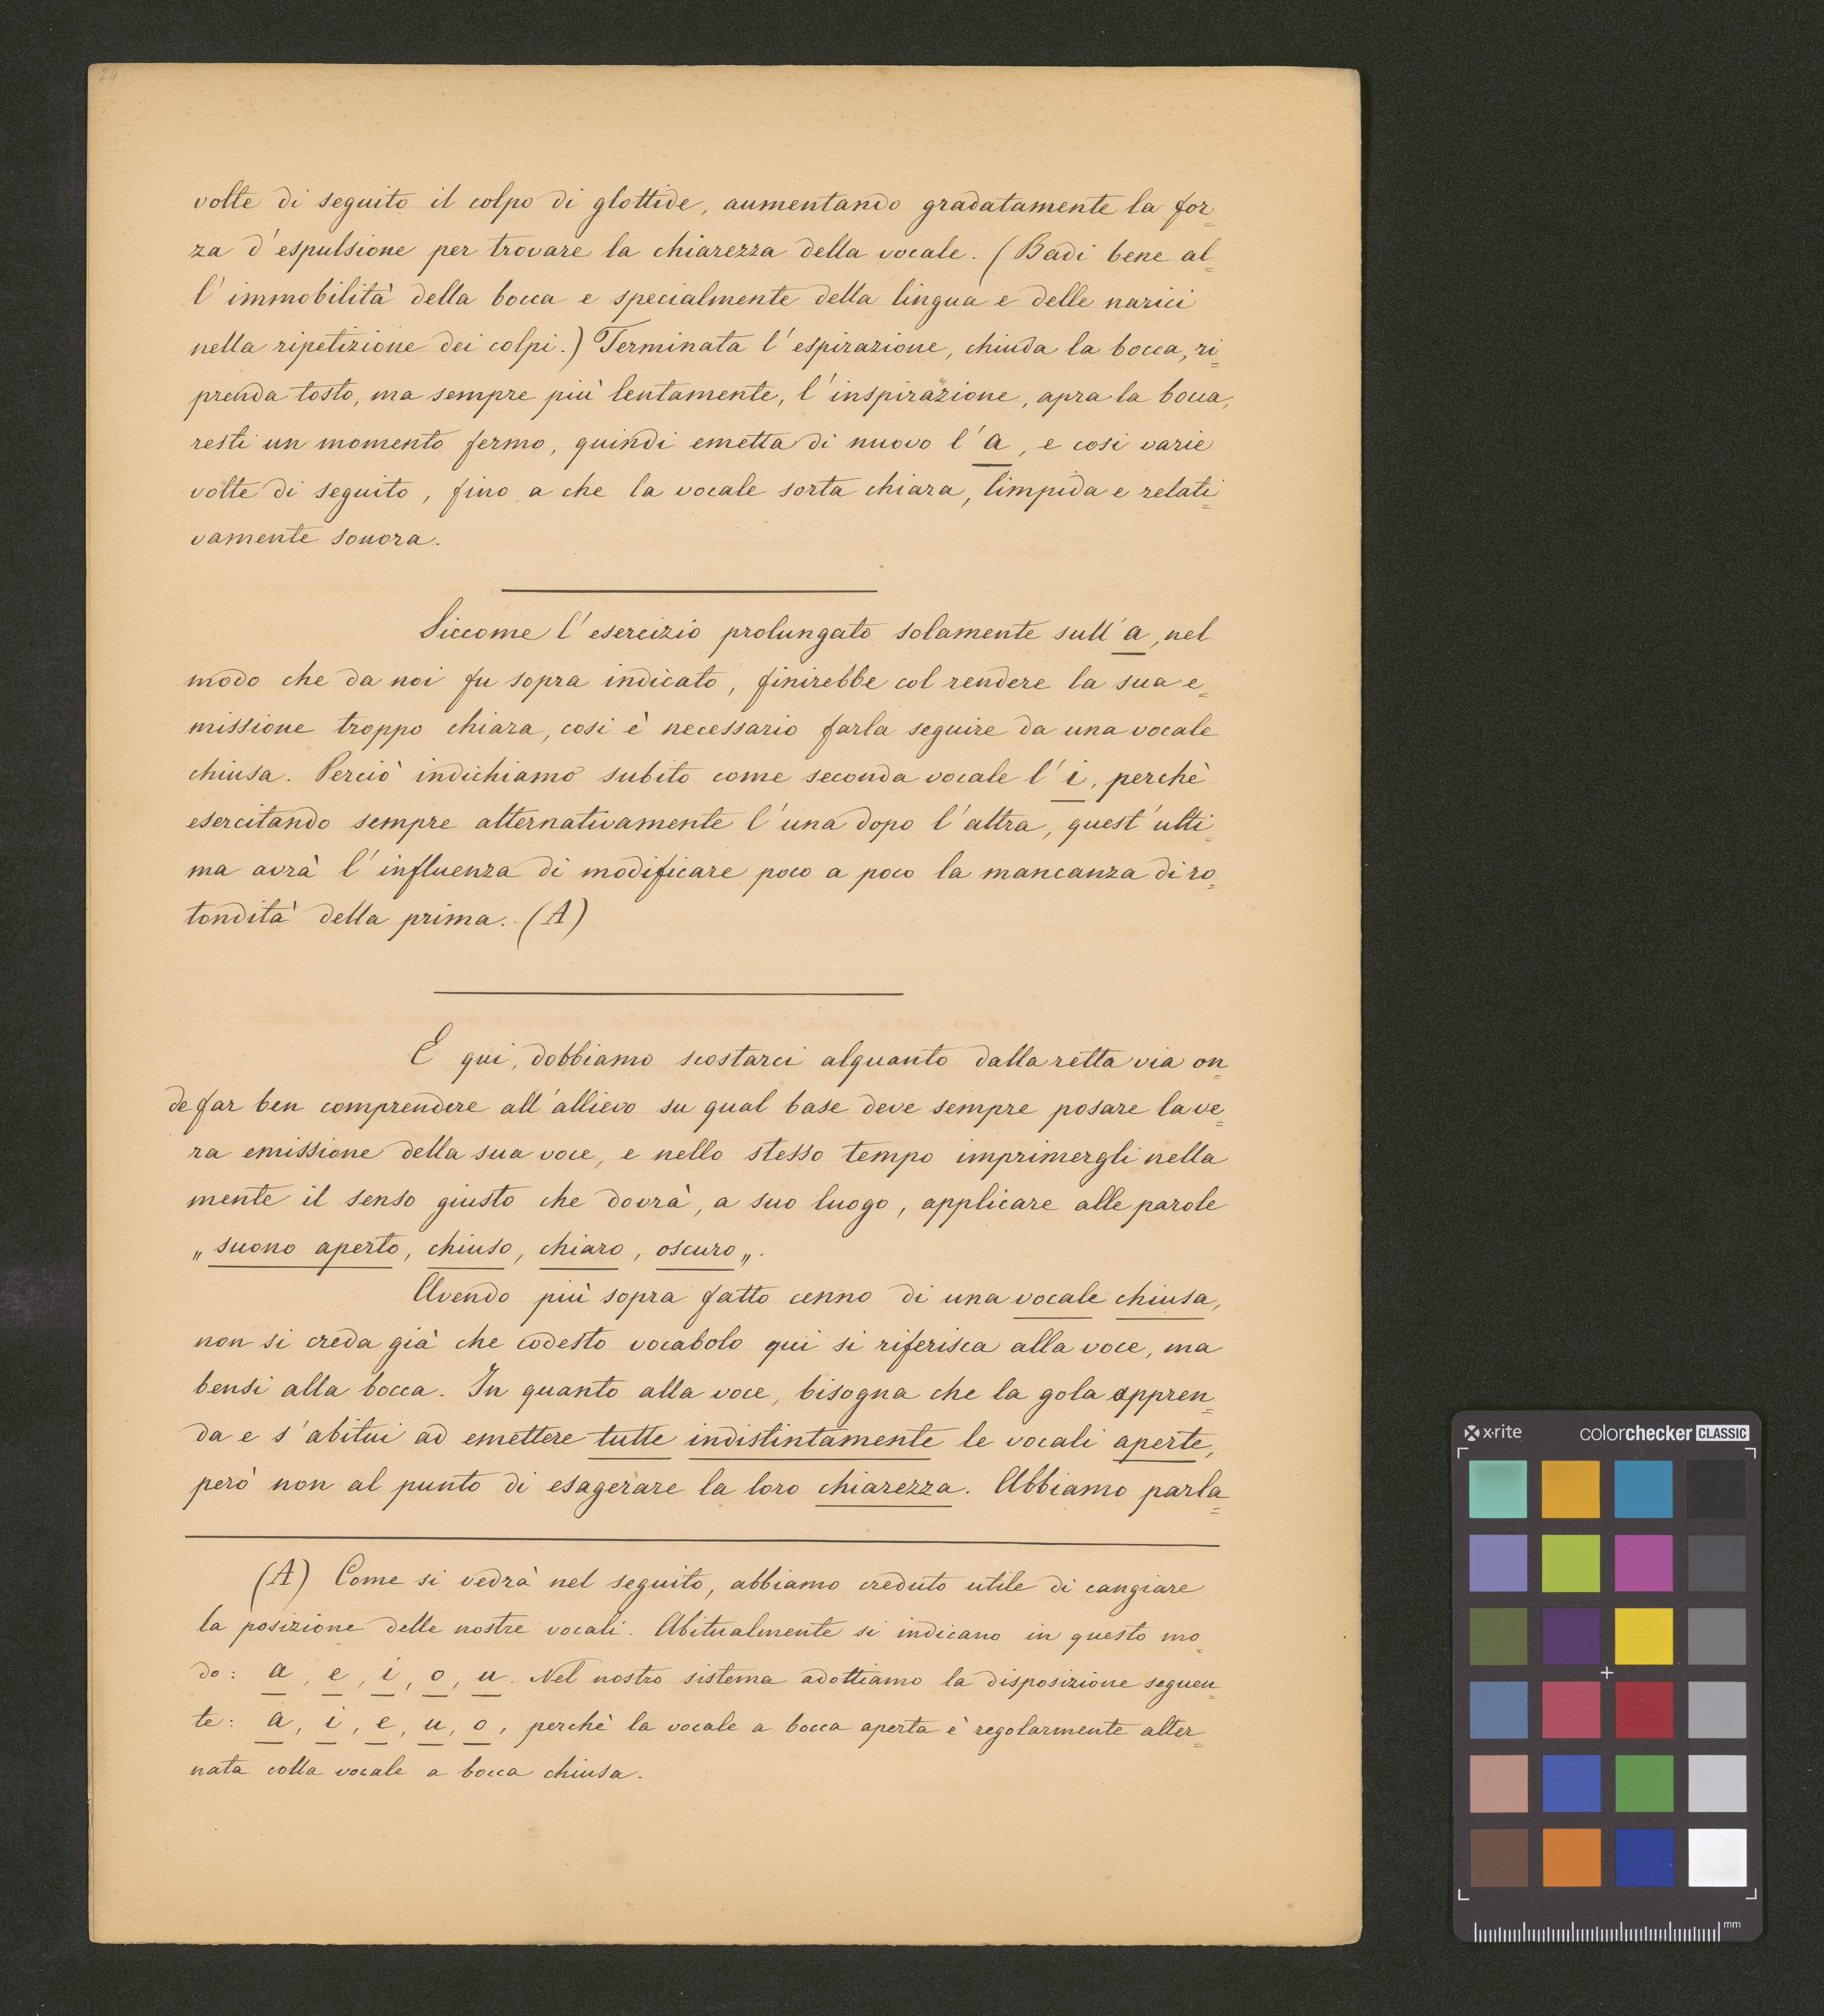 24
volte di seguito il colpo di glottide, aumentando gradatamente la for=
za d'espulsione per trovare la chiarezza della vocale. (Badi bene al=
l'immobilità della bocca e specialmente della lingua e delle narici
nella ripetizione dei colpi.) Terminata l'espirazione, chiuda la bocca, ri=
prenda tosto, ma sempre più lentamente, l'inspirazione, apra la bocca,
resti un momento fermo, quindi emetta di nuovo l'a, e cosi varie
volte di seguito, fino a che la vocale sorta chiara, limpida e relati=
vamente sonora.
Siccome l'esercizio prolungato solamente sull'a, nel
modo che da noi fu sopra indicato, finirebbe col rendere la sua e=
missione troppo chiara, cosi è necessario farla seguire da una vocale
chiusa. Perciò indichiamo subito come seconda vocale l'i, perchè
esercitando sempre alternativamente l'una dopo l'altra, quest'ulti=
ma avrà l'influenza di modificare poco a poco la mancanza di ro=
tondità della prima. (A)
E qui, dobbiamo scostarci alquanto dalla retta via on=
de far ben comprendere all'allievo su qual base deve sempre posare la ve=
ra emissione della sua voce, e nello stesso tempo imprimergli nella
mente il senso giusto che dovrà, a suo luogo, applicare alle parole
„suono aperto, chiuso, chiaro, oscuro„.
Avendo più sopra fatto cenno di una vocale chiusa,
non si creda già che codesto vocabolo qui si riferisca alla voce, ma
bensi alla bocca. In quanto alla voce, bisogna che la gola appren=
da e s'abitui ad emettere tutte indistintamente le vocali aperte,
però non al punto di esagerare la loro chiarezza. Abbiamo parla=
(A) Come si vedrà nel seguito, abbiamo creduto utile di cangiare
la posizione delle nostre vocali. Abitualmente si indicano in questo mo=
do: a, e, i, o, u. Nel nostro sistema adottiamo la disposizione seguen=
te: a, i, e, u, o, perchè la vocale a bocca aperta è regolarmente alter=
nata colla vocale a bocca chiusa.
x-rite colorchecker CLASSIC
mm